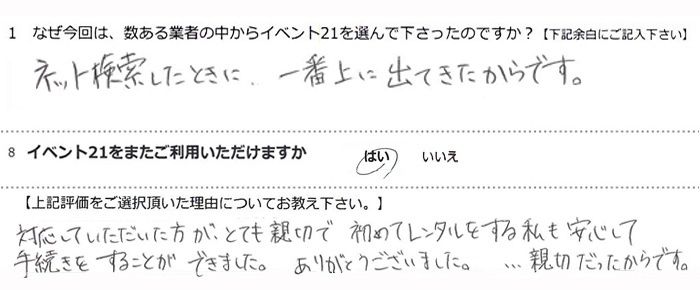 1 なぜ今回は、数ある業者の中からイベント21を選んで下さったのですか？【下記余白にご記入下さい】
ネット検索したときに、一番上に出てきたからです。
8 イベント21をまたご利用いただけますか はい いいえ
【上記評価をご選択頂いた理由についてお教え下さい。】
対応していただいた方が、とても親切で 初めてレンタルをする私も安心して
手続きをすることができました。ありがとうございました。…親切だったからです。